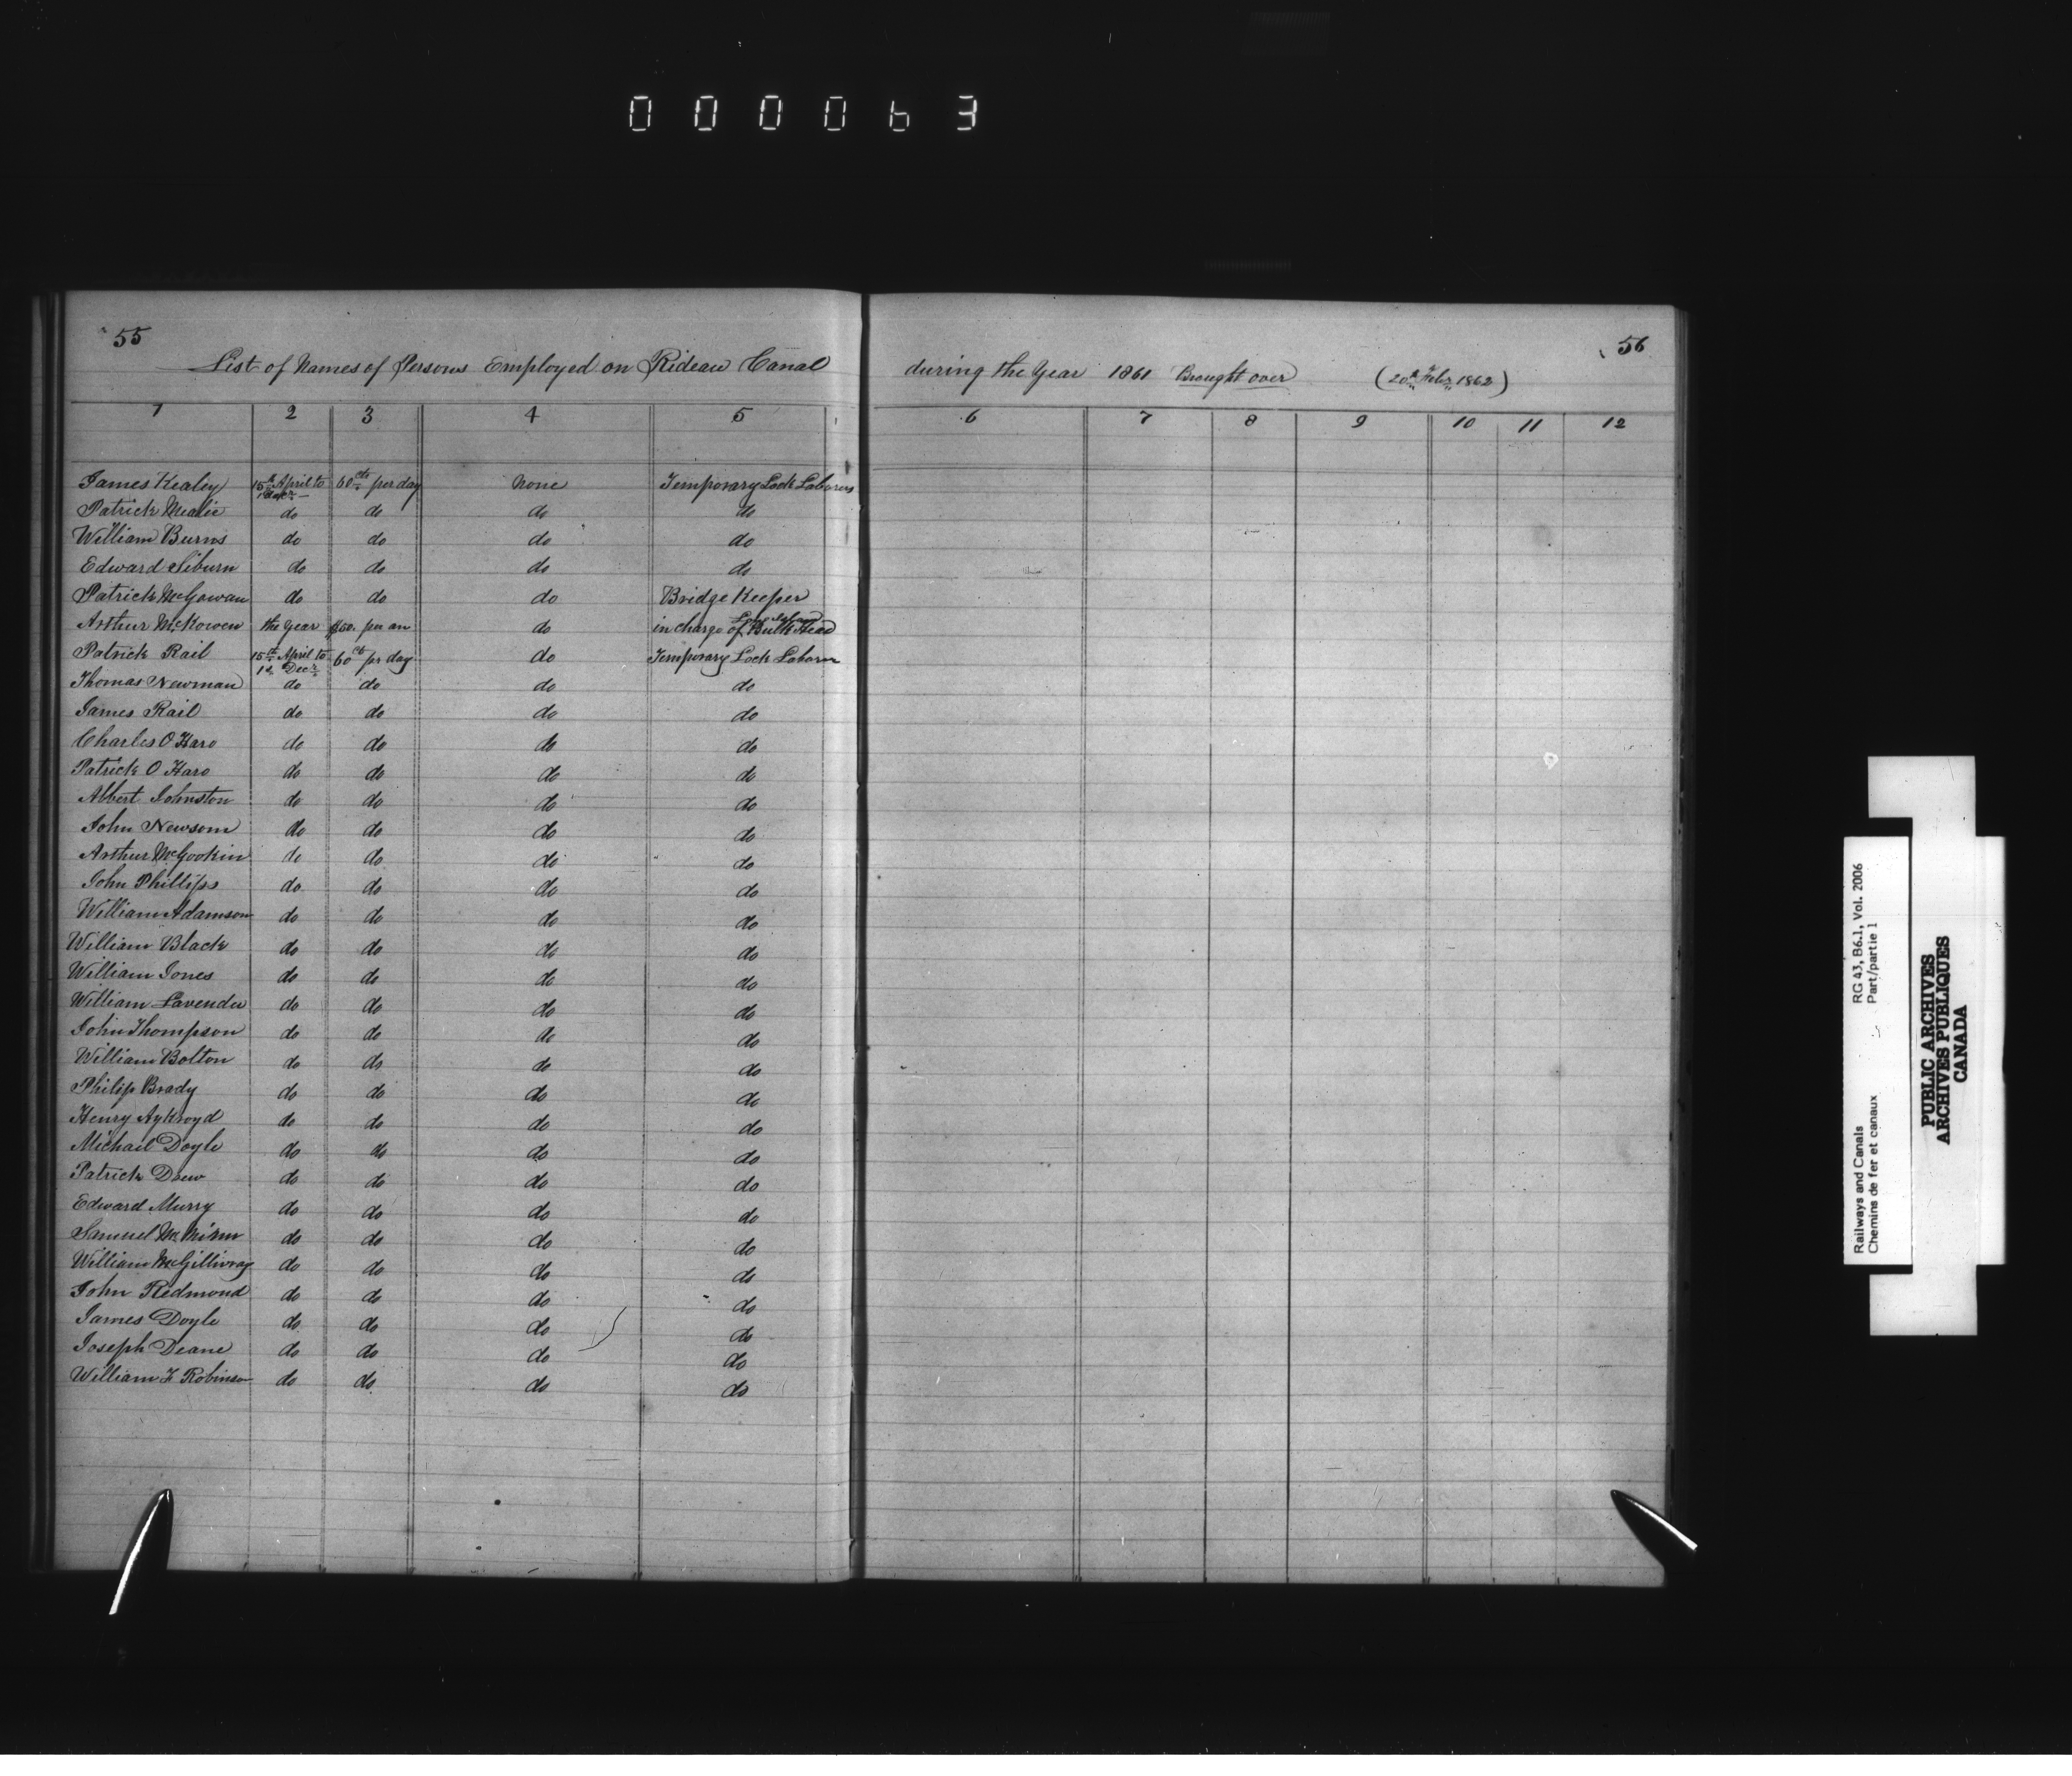 000063
55
List of Names of Persons Employed on Rideau Canal during the Year 1861 Brought over (20th Feby 1862)
56
1 2 3 4 5 6 7 8 9 10 11 12
James Kealey 15th April to 1 Decr 60 cts per day None Temporary Lock Laborers
Patrick Mealie do do do do
William Burns do do do do
Edward Siburn do do do do
Patrick McGowan do do do Bridge Keeper
Arthur McKowen the Year $50. per an do in charge of Long Island Bulk Head
Patrick Rail 15th April to 1st Decr 60 cts pr day do Temporary Lock Laborer
Thomas Newman do do do do
James Rail do do do do
Charles O Haro do do do do
Patrick O Haro do do do do
Albert Johnston do do do do
John Newsom do do do do
Arthur McGookin do do do do
John Phillips do do do do
William Adamson do do do do
William Black do do do do
William Jones do do do do
William Lavender do do do do
John Thompson do do do do
William Bolton do do do do
Philip Brady do do do do
Henry Aykroyd do do do do
Michael Doyle do do do do
Patrick Drew do do do do
Edward Murry do do do do
Samuel McMinn do do do do
William McGillivray do do do do
John Redmond do do do do
James Doyle do do do do
Joseph Deane do do do do
William F Robinson do do do do
Railways and Canals RG 43, B6.1, Vol. 2006
Chemins de fer et canaux Part/partie 1
PUBLIC ARCHIVES
ARCHIVES PUBLIQUES
CANADA